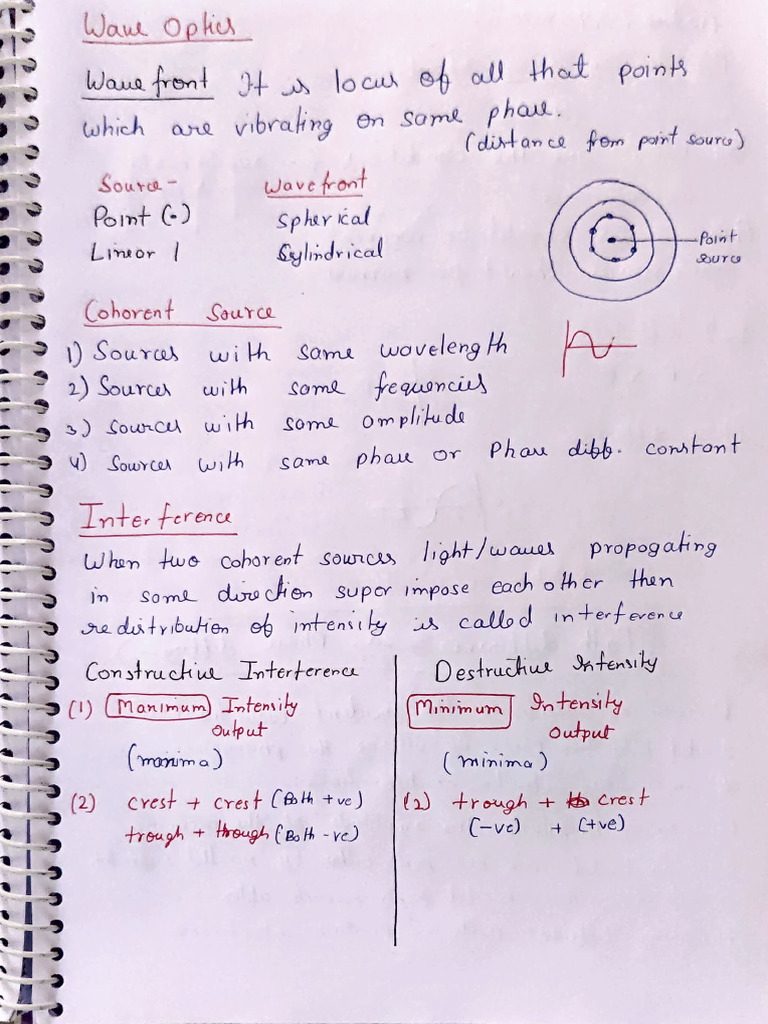 Wave Optics
Wavefront It is locus of all that points
which are vibrating on same phase.
(distance from point source)
Source- Wavefront
Point (•) Spherical
Linear | Cylindrical
Point
source
Coherent Source
1) Sources with same wavelength
2) Sources with same frequencies
3) Sources with same amplitude
4) Sources with same phase or Phase diff. constant
Interference
When two coherent sources light/waves propogating
in same direction superimpose each other then
redistribution of intensity is called interference
Constructive Interference Destructive Intensity
(1) Maximum Intensity Minimum Intensity
output output
(maxima) (minima)
(2) crest + crest (Both +ve) (2) trough + crest
trough + through (Both -ve) (-ve) + (+ve)